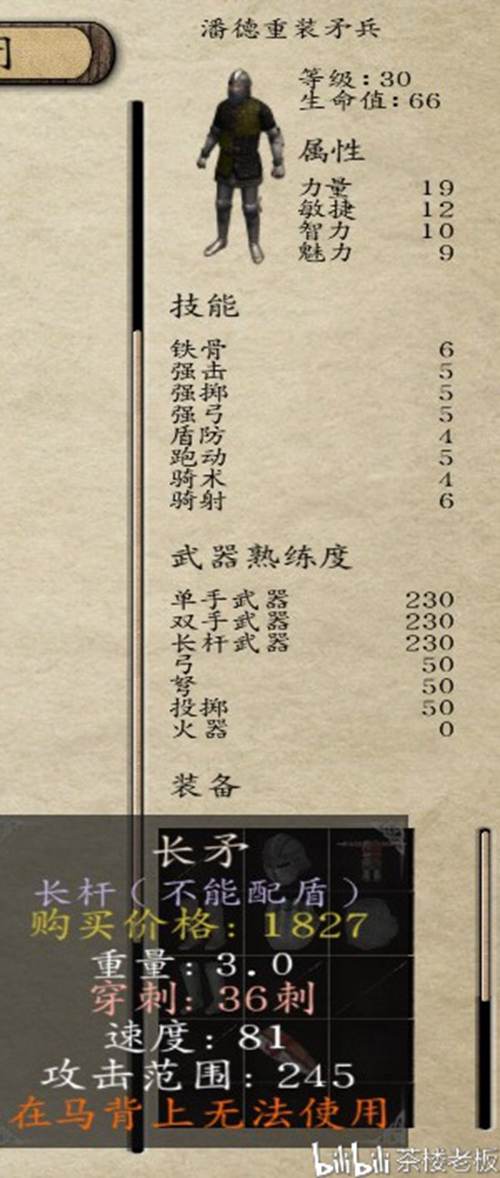 潘德重装矛兵
等级：30
生命值：66
属性
力量 19
敏捷 12
智力 10
魅力 9
技能
铁骨 6
强击 5
强掷 5
强弓 5
盾防 4
跑动 5
骑术 4
骑射 6
武器熟练度
单手武器 230
双手武器 230
长杆武器 230
弓 50
弩 50
投掷 50
火器 0
装备
长矛
长杆（不能配盾）
购买价格：1827
重量：3.0
穿刺：36刺
速度：81
攻击范围：245
在马背上无法使用
bilibili 茶楼老板